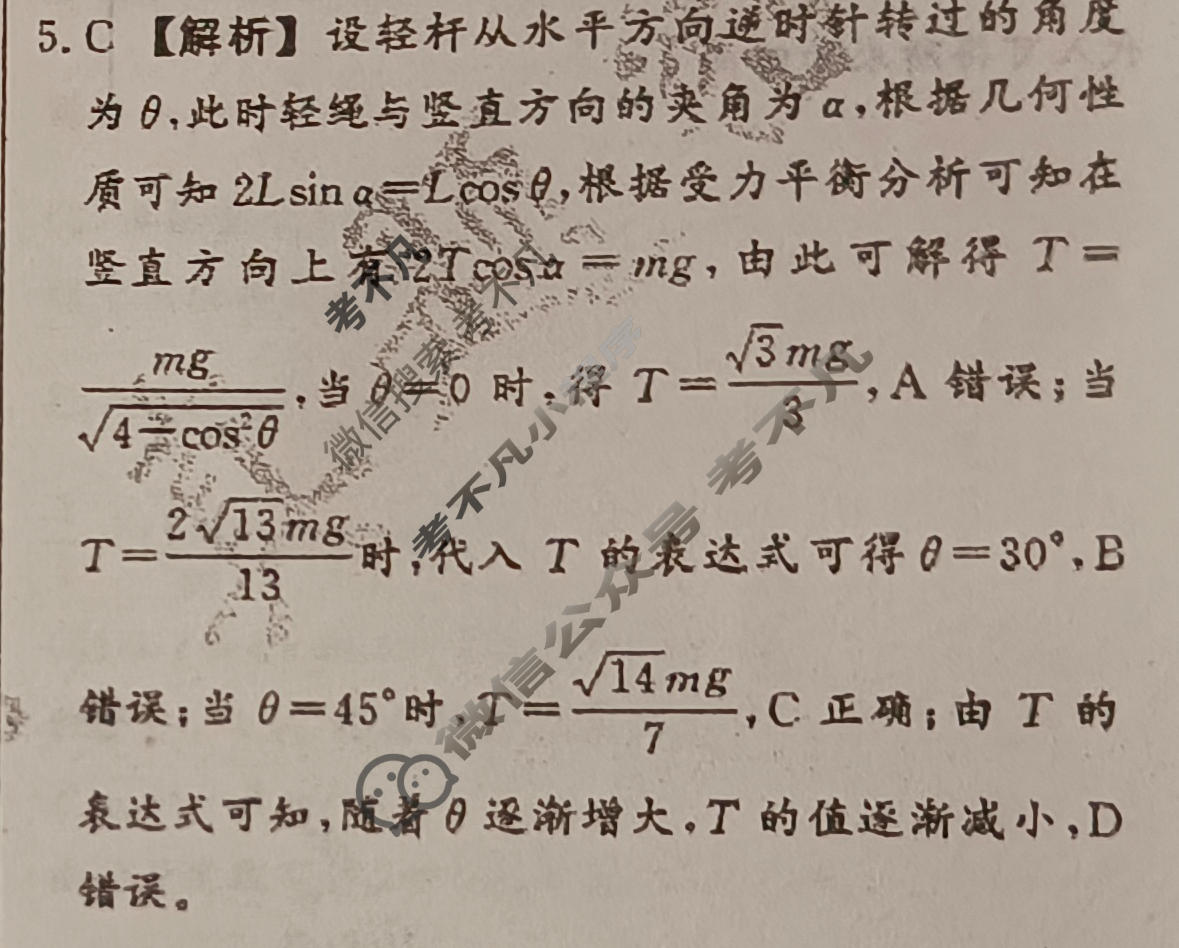 5. C 【解析】设轻杆从水平方向逆时针转过的角度
为 θ,此时轻绳与竖直方向的夹角为 α,根据几何性
质可知 2Lsin α=Lcos θ,根据受力平衡分析可知在
竖直方向上有 2Tcos α=mg,由此可解得 T=
mg/√(4-cos²θ),当 θ=0 时,得 T=√3mg/3,A 错误;当
T=2√13mg/13时,代入 T 的表达式可得 θ=30°,B
错误;当 θ=45°时,T=√14mg/7,C 正确;由 T 的
表达式可知,随着 θ 逐渐增大,T 的值逐渐减小,D
错误。
考不凡
微信搜索 考不凡
考不凡小程序
微信公众号 考不凡